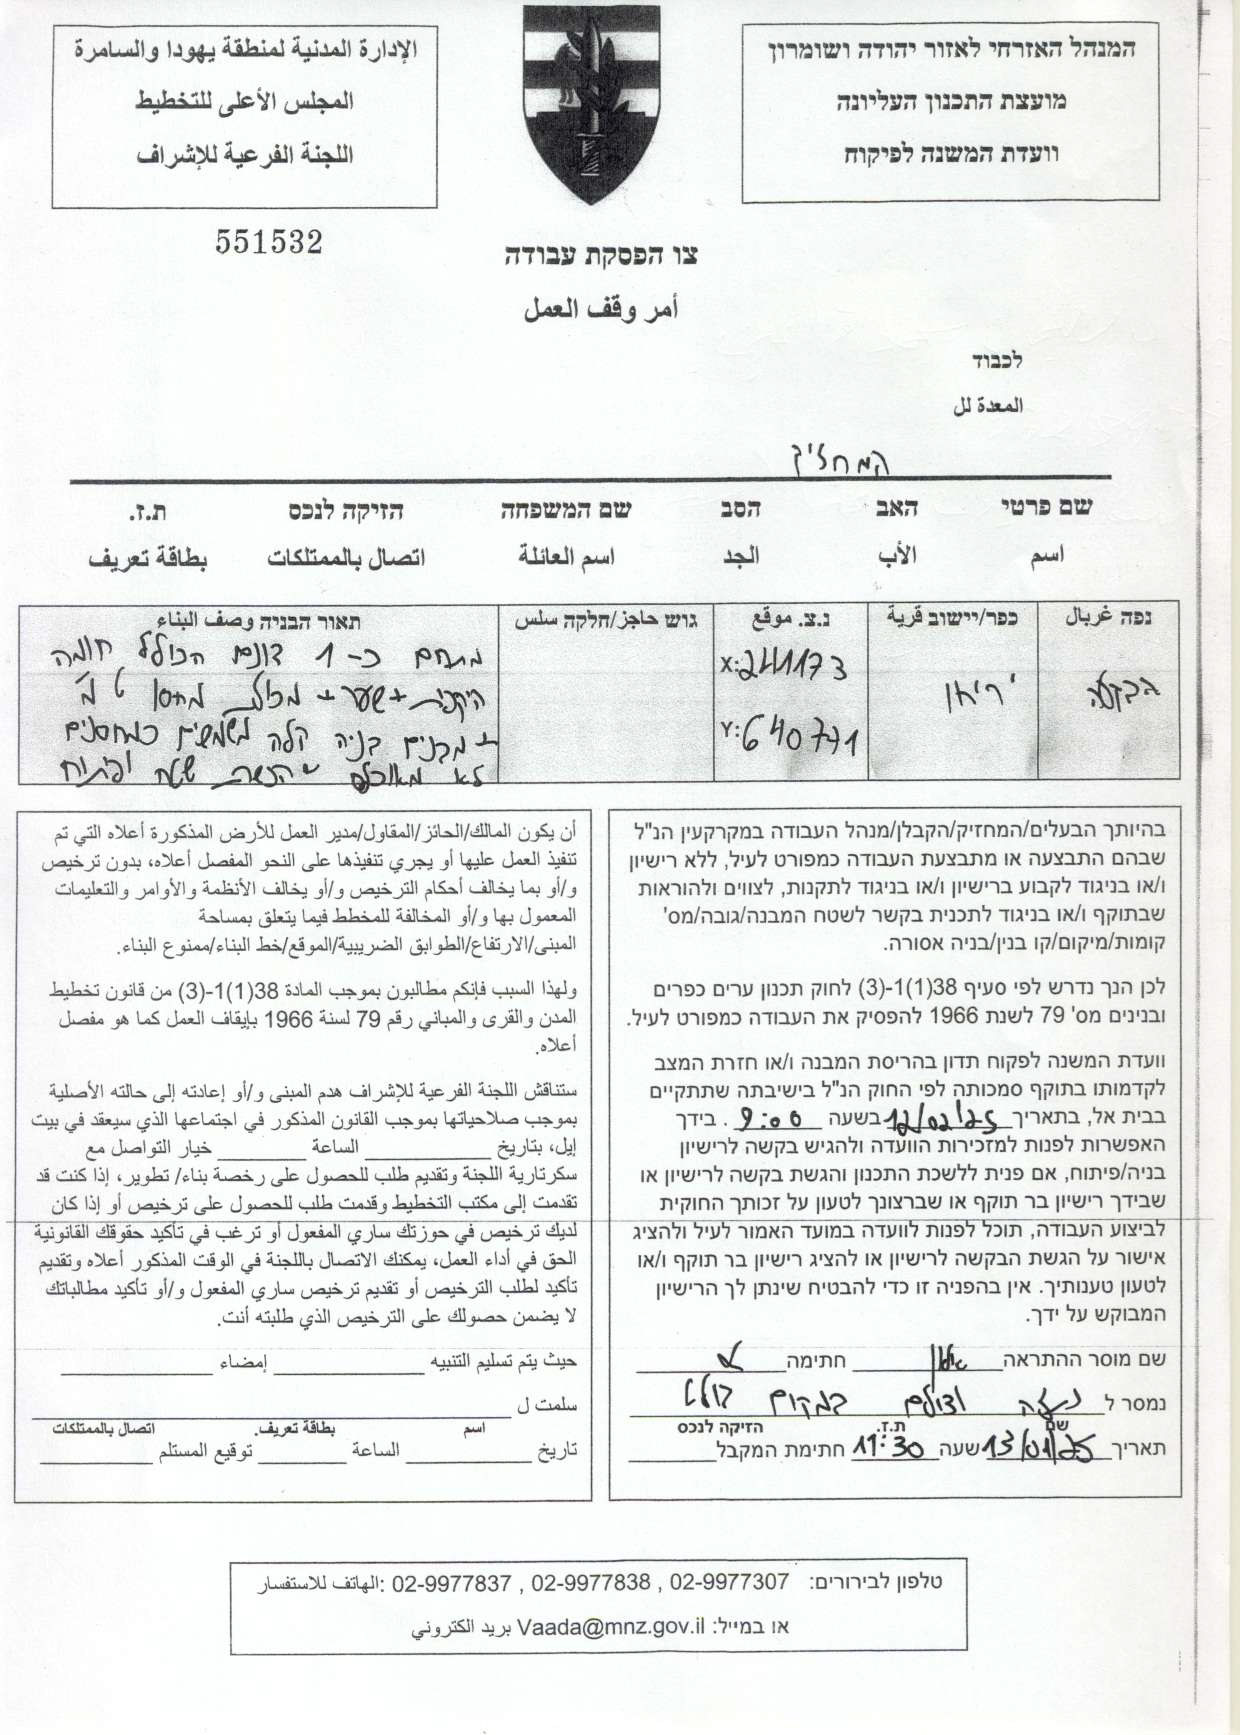 המנהל האזרחי לאזור יהודה ושומרון
מועצת התכנון העליונה
וועדת המשנה לפיקוח
الإدارة المدنية لمنطقة يهودا والسامرة
المجلس الأعلى للتخطيط
اللجنة الفرعية للإشراف
551532
צו הפסקת עבודה
أمر وقف العمل
לכבוד
المعدة لل
המחזיק
שם פרטי האב הסב שם המשפחה הזיקה לנכס ת.ז.
اسم الأب الجد اسم العائلة اتصال بالممتلكات بطاقة تعريف
נפה غربال
כפר/יישוב قرية
נ.צ. موقع
גוש حاجز/חלקה سلس
תאור הבניה وصف البناء
הבקעה
יריחו
X:241173
Y:640771
מתחם כ-1 דונם הכולל חומה
היקפית + שער + מכולת מחסן 6 מ'
+ מבנים בניה קלה משמשים כמחסנים
לא מאוכלס + הכשרת שטח ופיתוח
בהיותך הבעלים/המחזיק/הקבלן/מנהל העבודה במקרקעין הנ"ל
שבהם התבצעה או מתבצעת העבודה כמפורט לעיל, ללא רישיון
ו/או בניגוד לקבוע ברישיון ו/או בניגוד לתקנות, לצווים ולהוראות
שבתוקף ו/או בניגוד לתכנית בקשר לשטח המבנה/גובה/מס'
קומות/מיקום/קו בנין/בניה אסורה.
לכן הנך נדרש לפי סעיף 38(1)1-(3) לחוק תכנון ערים כפרים
ובנינים מס' 79 לשנת 1966 להפסיק את העבודה כמפורט לעיל.
וועדת המשנה לפקוח תדון בהריסת המבנה ו/או חזרת המצב
לקדמותו בתוקף סמכותה לפי החוק הנ"ל בישיבתה שתתקיים
בבית אל, בתאריך 12/02/25 בשעה 9:00 . בידך
האפשרות לפנות למזכירות הוועדה ולהגיש בקשה לרישיון
בניה/פיתוח, אם פנית ללשכת התכנון והגשת בקשה לרישיון או
שבידך רישיון בר תוקף או שברצונך לטעון על זכותך החוקית
לביצוע העבודה, תוכל לפנות לוועדה במועד האמור לעיל ולהציג
אישור על הגשת הבקשה לרישיון או להציג רישיון בר תוקף ו/או
לטעון טענותיך. אין בהפניה זו כדי להבטיח שינתן לך הרישיון
המבוקש על ידך.
שם מוסר ההתראה אילן חתימה
נמסר ל במקום בולט
שם ת.ז. הזיקה לנכס
תאריך 13/01/25 שעה 11:30 חתימת המקבל
أن يكون المالك/الحائز/المقاول/مدير العمل للأرض المذكورة أعلاه التي تم
تنفيذ العمل عليها أو يجري تنفيذها على النحو المفصل أعلاه، بدون ترخيص
و/أو بما يخالف أحكام الترخيص و/أو يخالف الأنظمة والأوامر والتعليمات
المعمول بها و/أو المخالفة للمخطط فيما يتعلق بمساحة
المبنى/الارتفاع/الطوابق الضريبية/الموقع/خط البناء/ممنوع البناء.
ولهذا السبب فإنكم مطالبون بموجب المادة 38(1)1-(3) من قانون تخطيط
المدن والقرى والمباني رقم 79 لسنة 1966 بإيقاف العمل كما هو مفصل
أعلاه.
ستناقش اللجنة الفرعية للإشراف هدم المبنى و/أو إعادته إلى حالته الأصلية
بموجب صلاحياتها بموجب القانون المذكور في اجتماعها الذي سيعقد في بيت
إيل، بتاريخ الساعة خيار التواصل مع
سكرتارية اللجنة وتقديم طلب للحصول على رخصة بناء/ تطوير، إذا كنت قد
تقدمت إلى مكتب التخطيط وقدمت طلب للحصول على ترخيص أو إذا كان
لديك ترخيص في حوزتك ساري المفعول أو ترغب في تأكيد حقوقك القانونية
الحق في أداء العمل، يمكنك الاتصال باللجنة في الوقت المذكور أعلاه وتقديم
تأكيد لطلب الترخيص أو تقديم ترخيص ساري المفعول و/أو تأكيد مطالباتك
لا يضمن حصولك على الترخيص الذي طلبته أنت.
حيث يتم تسليم التنبيه إمضاء
سلمت ل
اسم بطاقة تعريف. اتصال بالممتلكات
تاريخ الساعة توقيع المستلم
טלפון לבירורים: 02-9977307 , 02-9977838 , 02-9977837 :الهاتف للاستفسار
או במייל: Vaada@mnz.gov.il بريد الكتروني